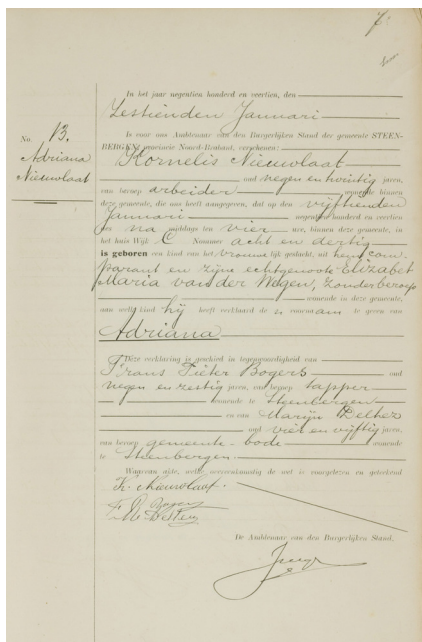 7.
In het jaar negentien honderd en veertien, den
Zestienden Januari
Is voor ons Ambtenaar van den Burgerlijken Stand der gemeente STEEN-
BERGEN, provincie Noord-Brabant, verschenen:
No. 13.
Adriana
Nieuwlaat
Kornelis Nieuwlaat
oud negen en twintig jaren,
van beroep arbeider wonende binnen
deze gemeente, die ons heeft aangegeven, dat op den vijftienden
Januari negentien honderd en veertien
des na middags ten vier ure, binnen deze gemeente, in
het huis Wijk C Nommer acht en dertig
is geboren een kind van het vrouwelijk geslacht, uit hem, com-
parant en zijne echtgenoote Elizabet
Maria van der Wegen, zonder beroep
wonende in deze gemeente,
aan welk kind hij heeft verklaard de n voornaam te geven van
Adriana
Deze verklaring is geschied in tegenwoordigheid van
Frans Pieter Bogers oud
negen en zestig jaren, van beroep tapper
wonende te Steenbergen
en van Marijn Delhez
oud vier en vijftig jaren,
van beroep gemeente-bode wonende
te Steenbergen.
Waarvan akte, welke overeenkomstig de wet is voorgelezen en geteekend
K. Nieuwlaat.
De Ambtenaar van den Burgerlijken Stand.